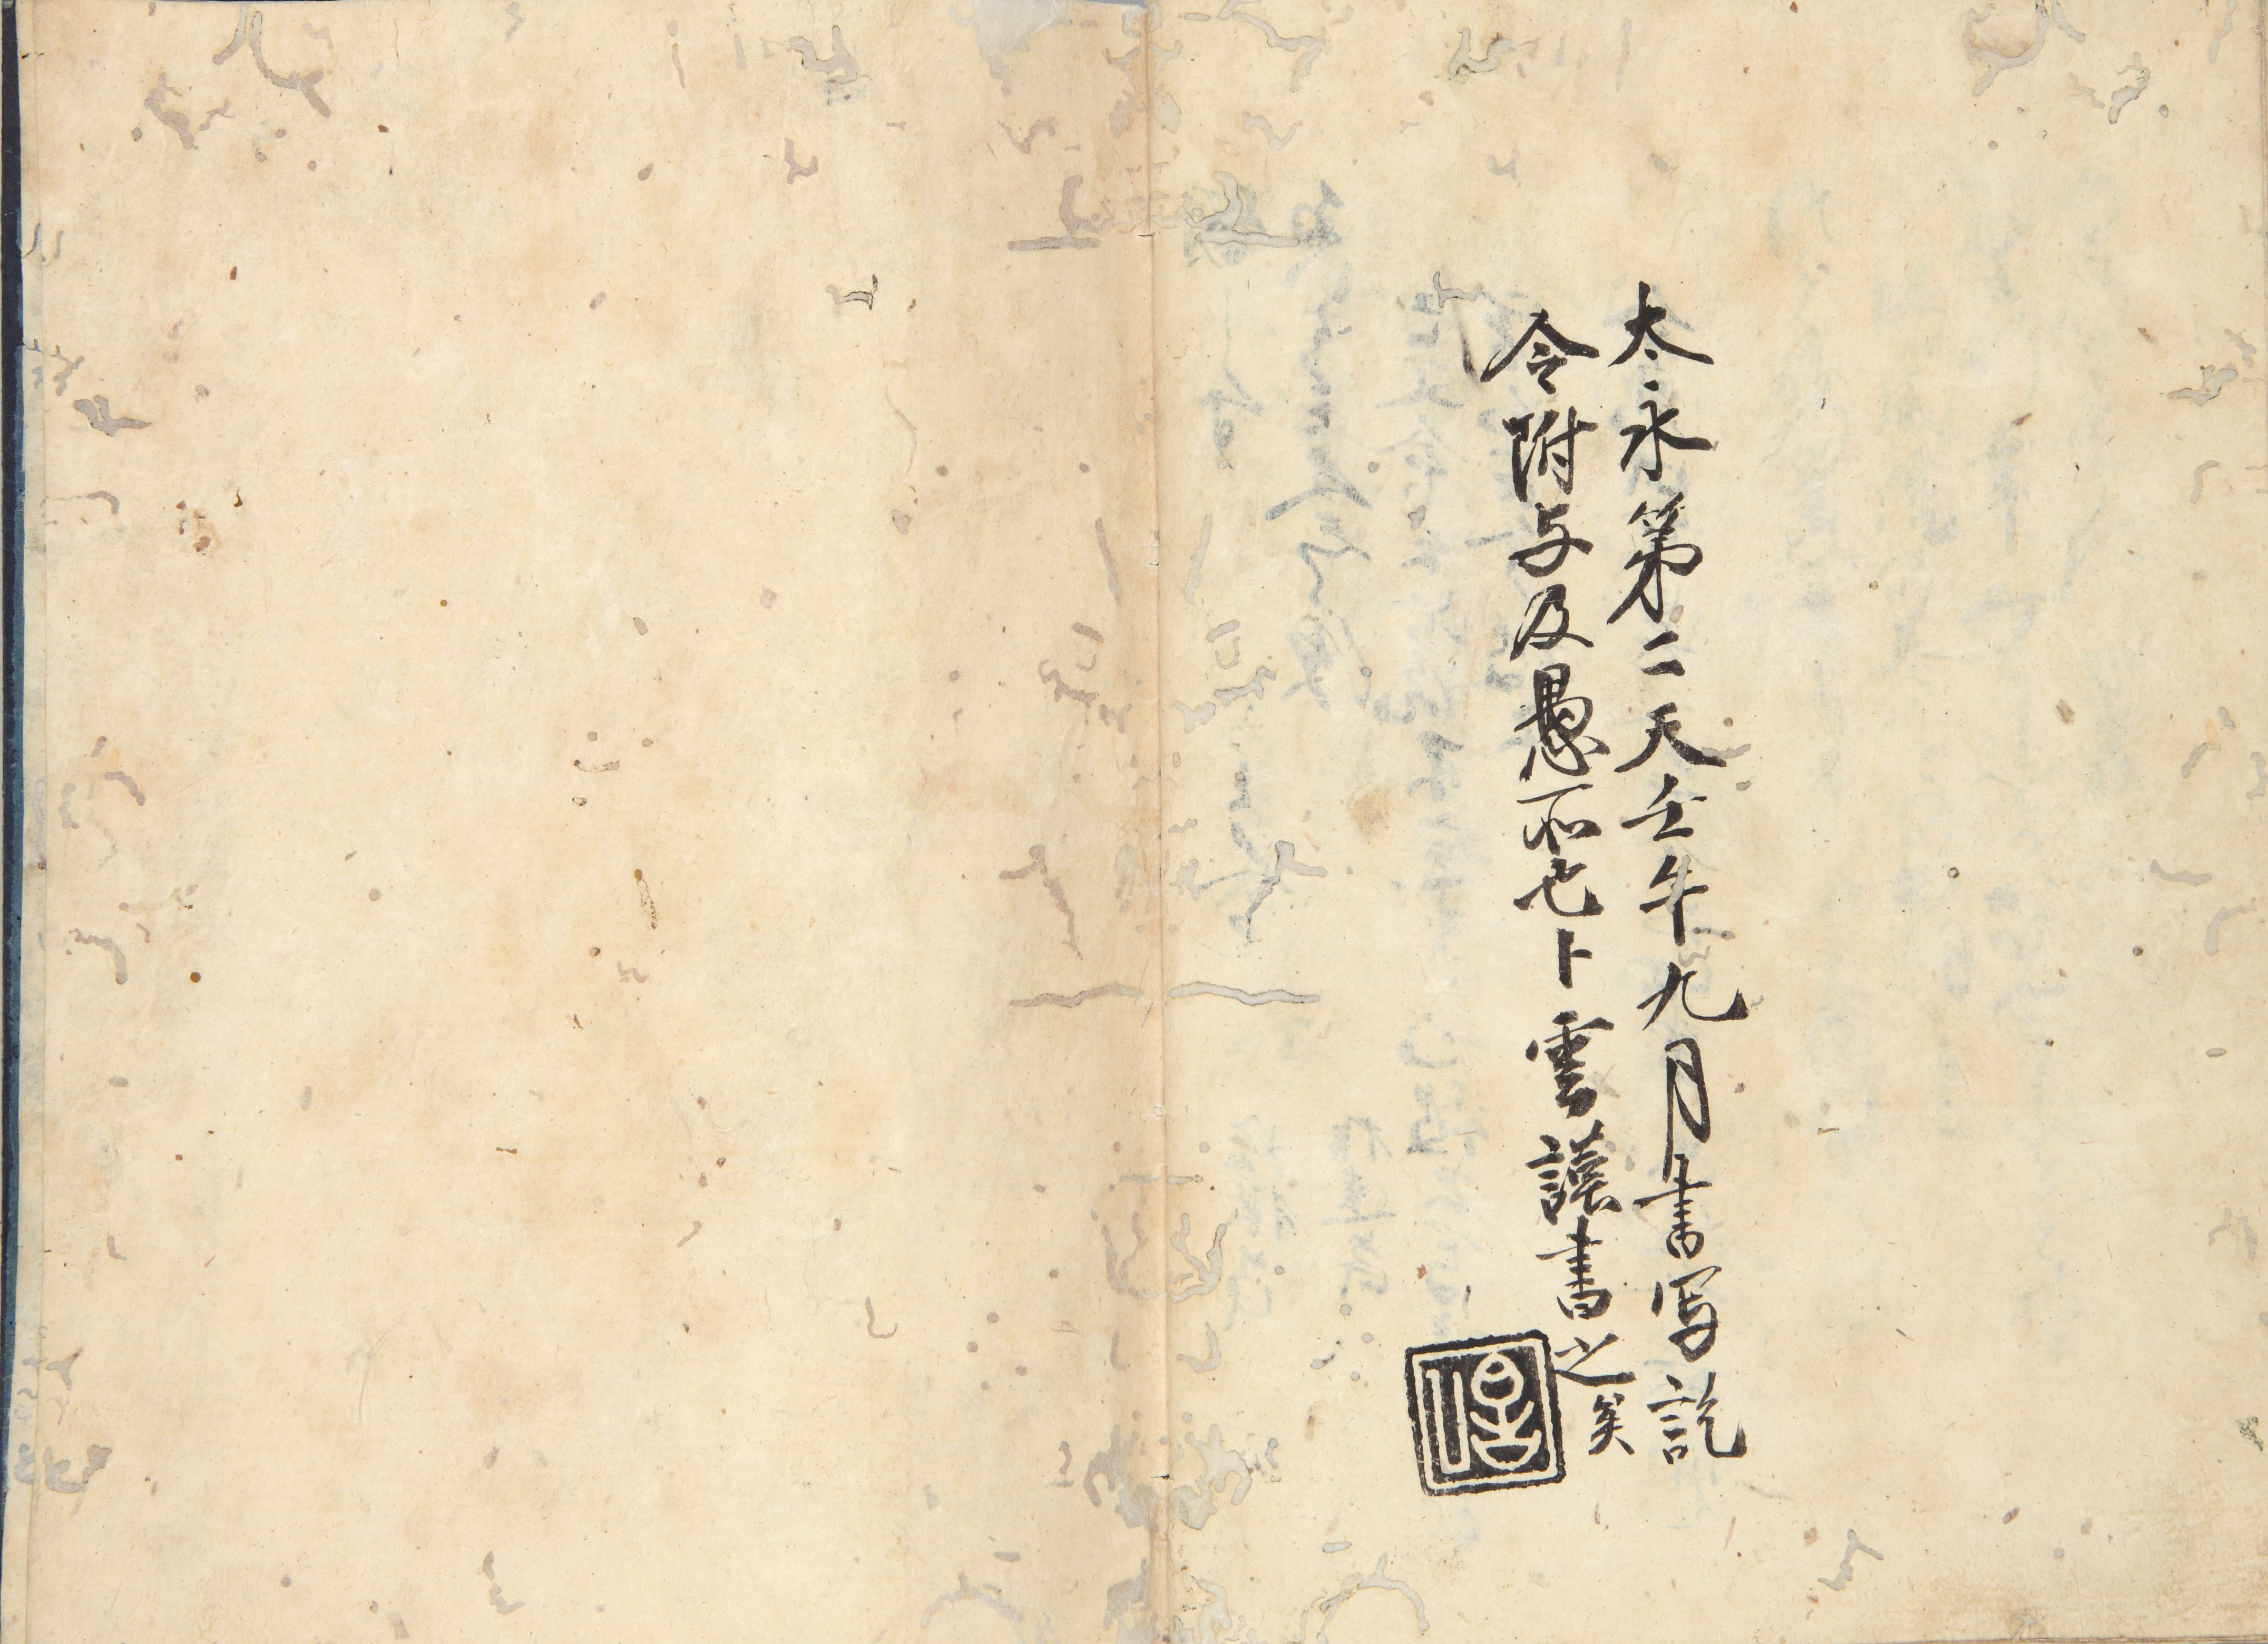 太永第二天壬午九月書写訖
令附与及愚不也卜雲謹書之矣